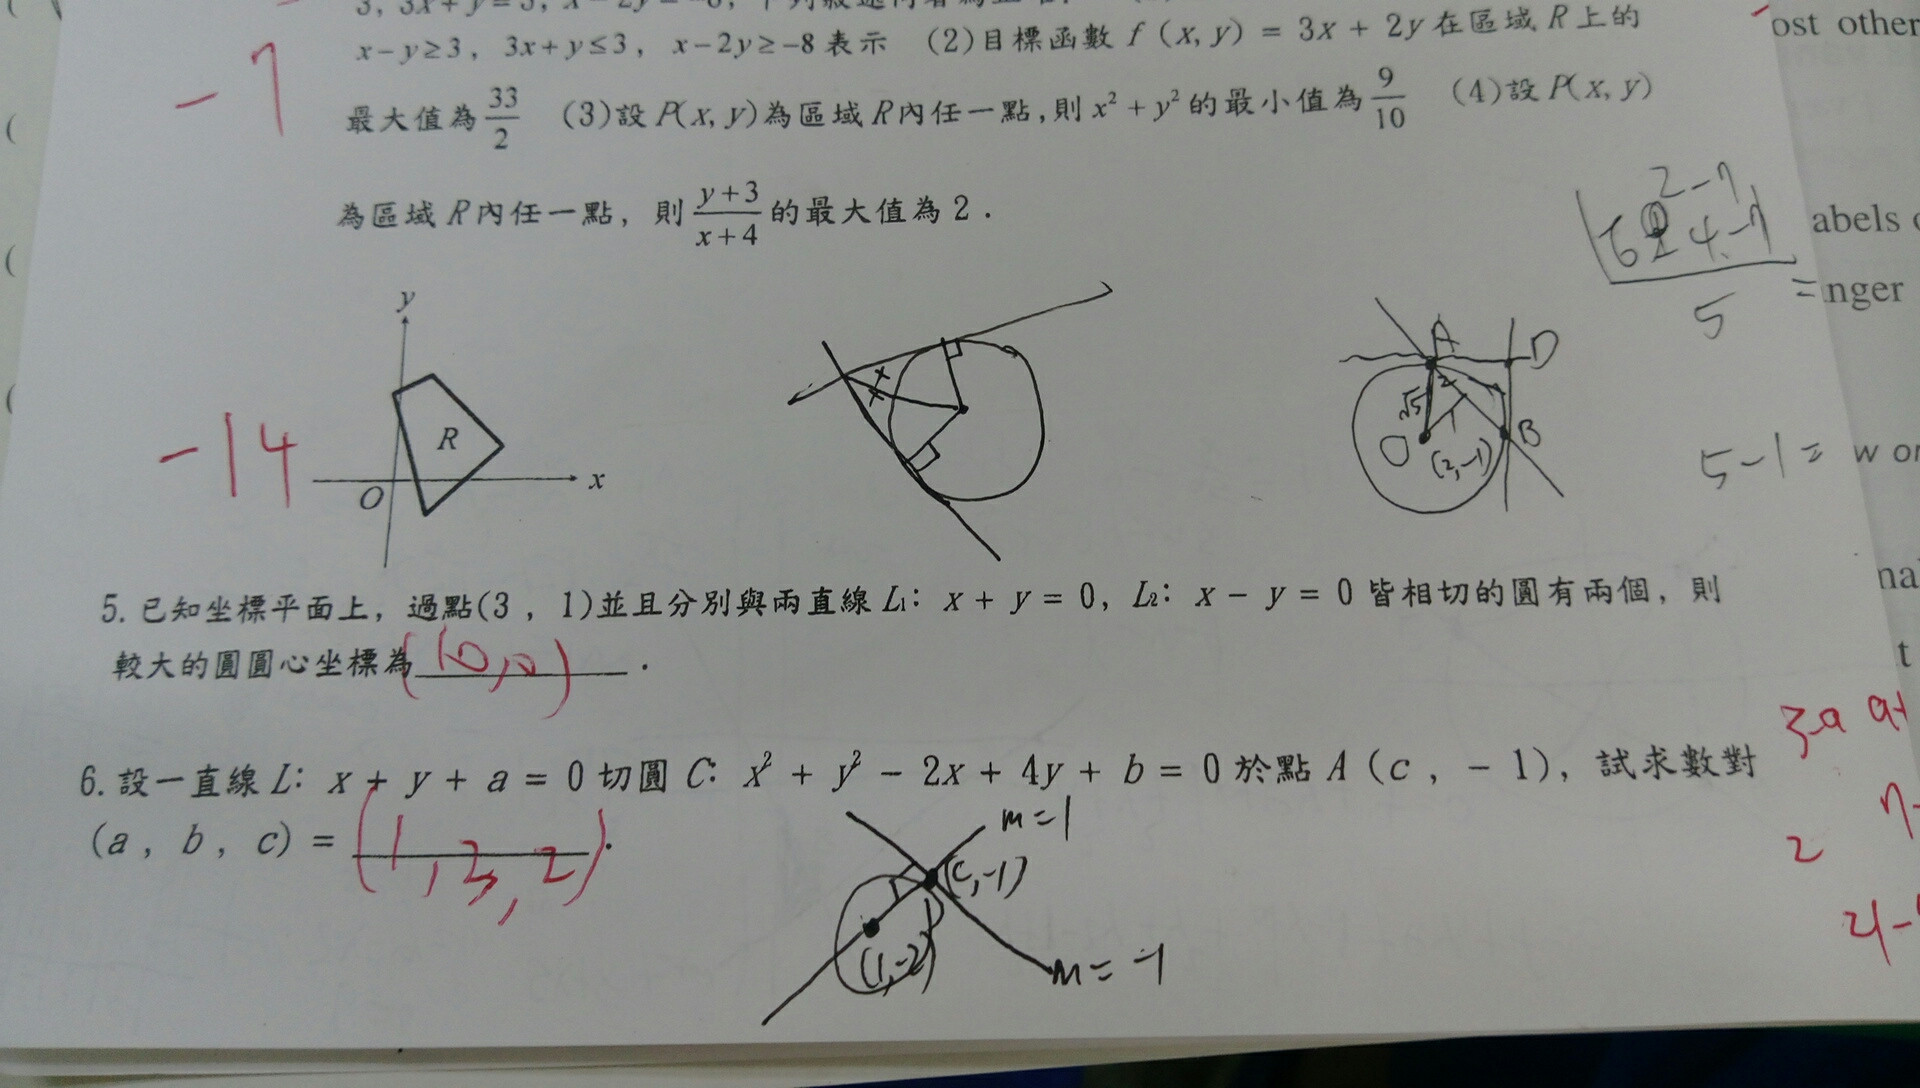 x－y≥3, 3x+y≤3, x－2y≥－8表示 (2)目標函數 f (x, y) = 3x + 2y在區域 R上的
－7
最大值為33/2 (3)設 P(x, y)為區域 R內任一點,則 x² + y² 的最小值為9/10 (4)設 P(x, y)
為區域 R內任一點, 則 y+3/x+4 的最大值為 2 .
ost other
2－7
abels
5 =
nger
y
R
O
x
－14
A
D
√5
2
1
O
(2,－1)
B
5－1=
w
5. 已知坐標平面上, 過點(3 , 1)並且分別與兩直線 L₁: x + y = 0, L₂: x － y = 0 皆相切的圓有兩個, 則
較大的圓圓心坐標為(10,0) .
na
t
3-a
6. 設一直線 L: x + y + a = 0 切圓 C: x² + y² － 2x + 4y + b = 0 於點 A (c , － 1), 試求數對
(a , b , c) = (1, 3, 2).
2
m=1
(c,-1)
(1,-2)
m=-1